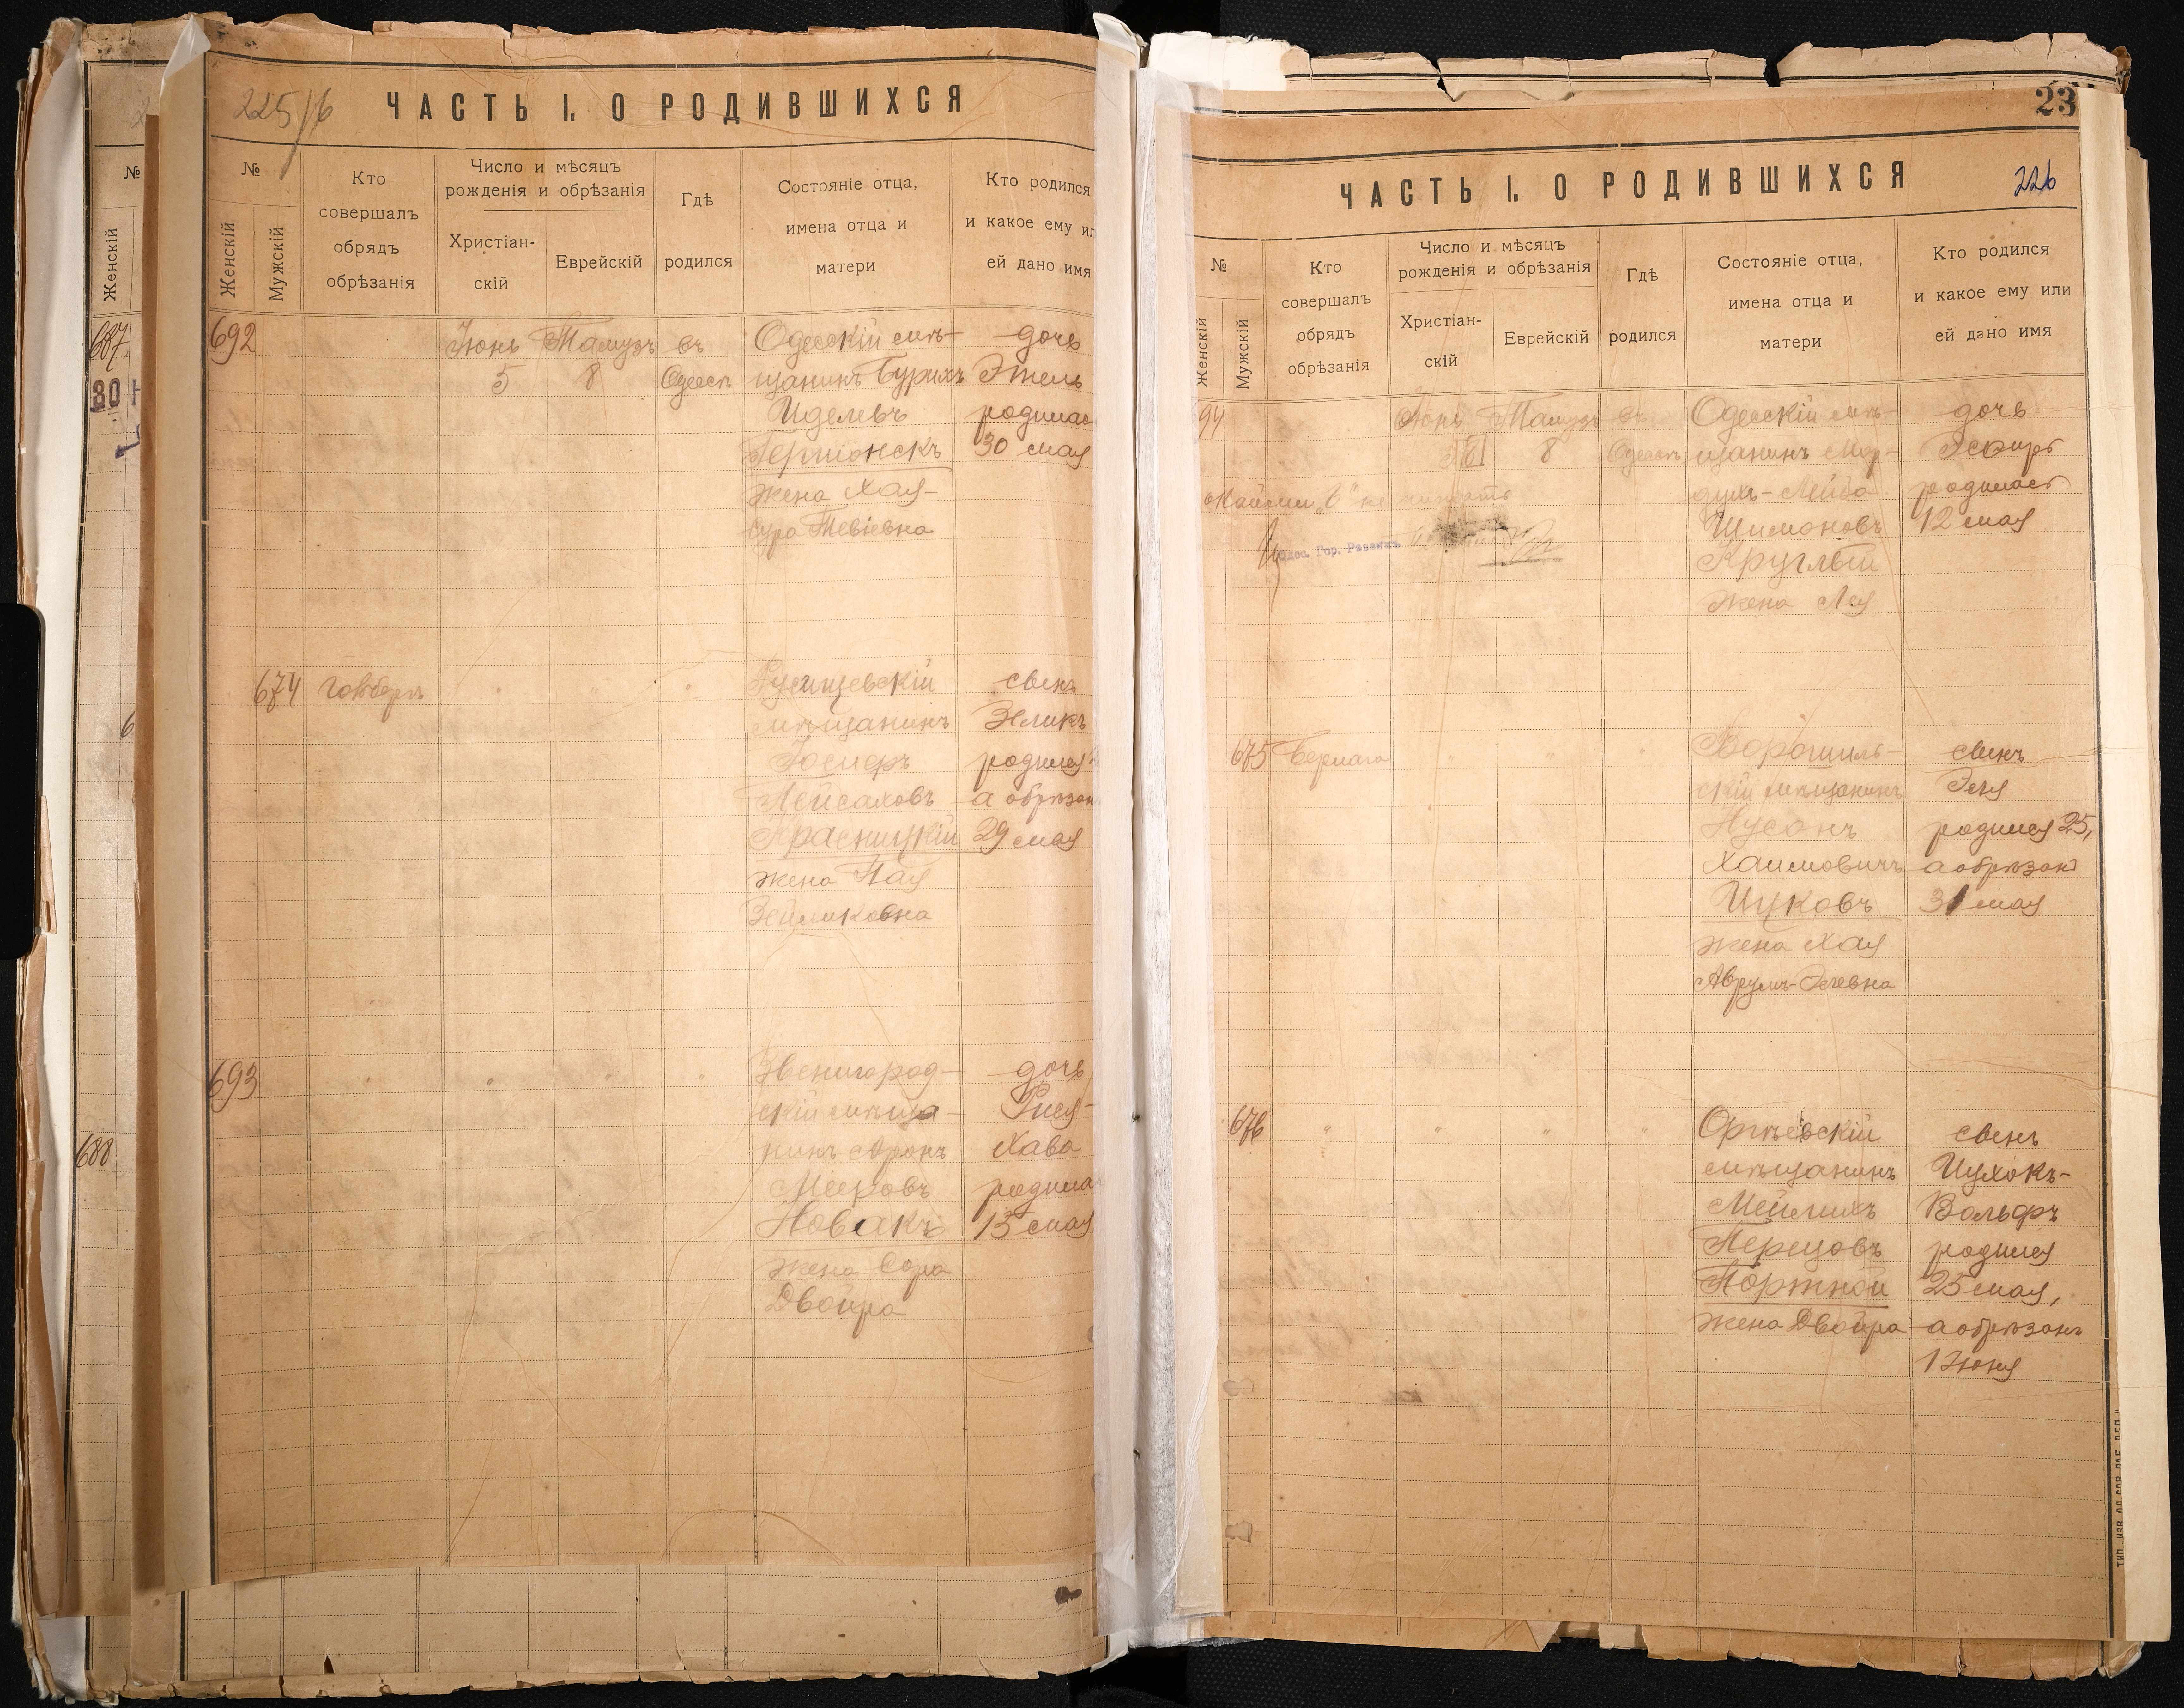 225/б
ЧАСТЬ I. О РОДИВШИХСЯ
№
Женскій
Мужскій
Кто
совершалъ
обрядъ
обрѣзанія
Число и мѣсяцъ
рожденія и обрѣзанія
Христіан-
скій
Еврейскій
Гдѣ
родился
Состояніе отца,
имена отца и
матери
Кто родился
и какое ему ил
ей дано имя
692
Іюнь
5
Тамузъ
8
въ
Одессѣ
Одесскій мѣ-
щанинъ Бурихъ
Иделевъ
жена Хая-
Сура Тевіевна
дочь
Этель
родилас
30 мая
674
мѣщанинъ
Іосифъ
Пейсаховъ
Красницкій
жена Хая
Зейликовна
сынъ
Зеликъ
родился
а обрѣзан
29 мая
693
Звенигород-
скій мѣща-
нинъ Аронъ
Мееровъ
Новакъ
жена Сора
Двойра
дочь
Рися-
Хава
родила
13 мая
№
Женскій
687
30
688
23
ЧАСТЬ I. О РОДИВШИХСЯ
226
№
Женскій
Мужскій
Кто
совершалъ
обрядъ
обрѣзанія
Число и мѣсяцъ
рожденія и обрѣзанія
Христіан-
скій
Еврейскій
Гдѣ
родился
Состояніе отца,
имена отца и
матери
Кто родился
и какое ему или
ей дано имя
94
Іюнь
Тамузъ
8
въ
Одессѣ
Одесскій мѣ-
щанинъ Мор-
духъ-Лейба
Шимоновъ
Круглый
жена Лея
дочь
Эсфирь
родилась
12 мая
"6" не читать
Одес. Гор. Раввинъ
675
скій мѣщанинъ
Нусонъ
Хаимовичъ
Цуковъ
жена Хая
сынъ
родился 25,
а обрѣзанъ
31 мая
676
Оргѣевскій
мѣщанинъ
Мейлихъ
Перецовъ
Портной
жена Двойра
сынъ
Ицхокъ-
Вольфъ
родился
25 мая,
а обрѣзанъ
1 Іюня